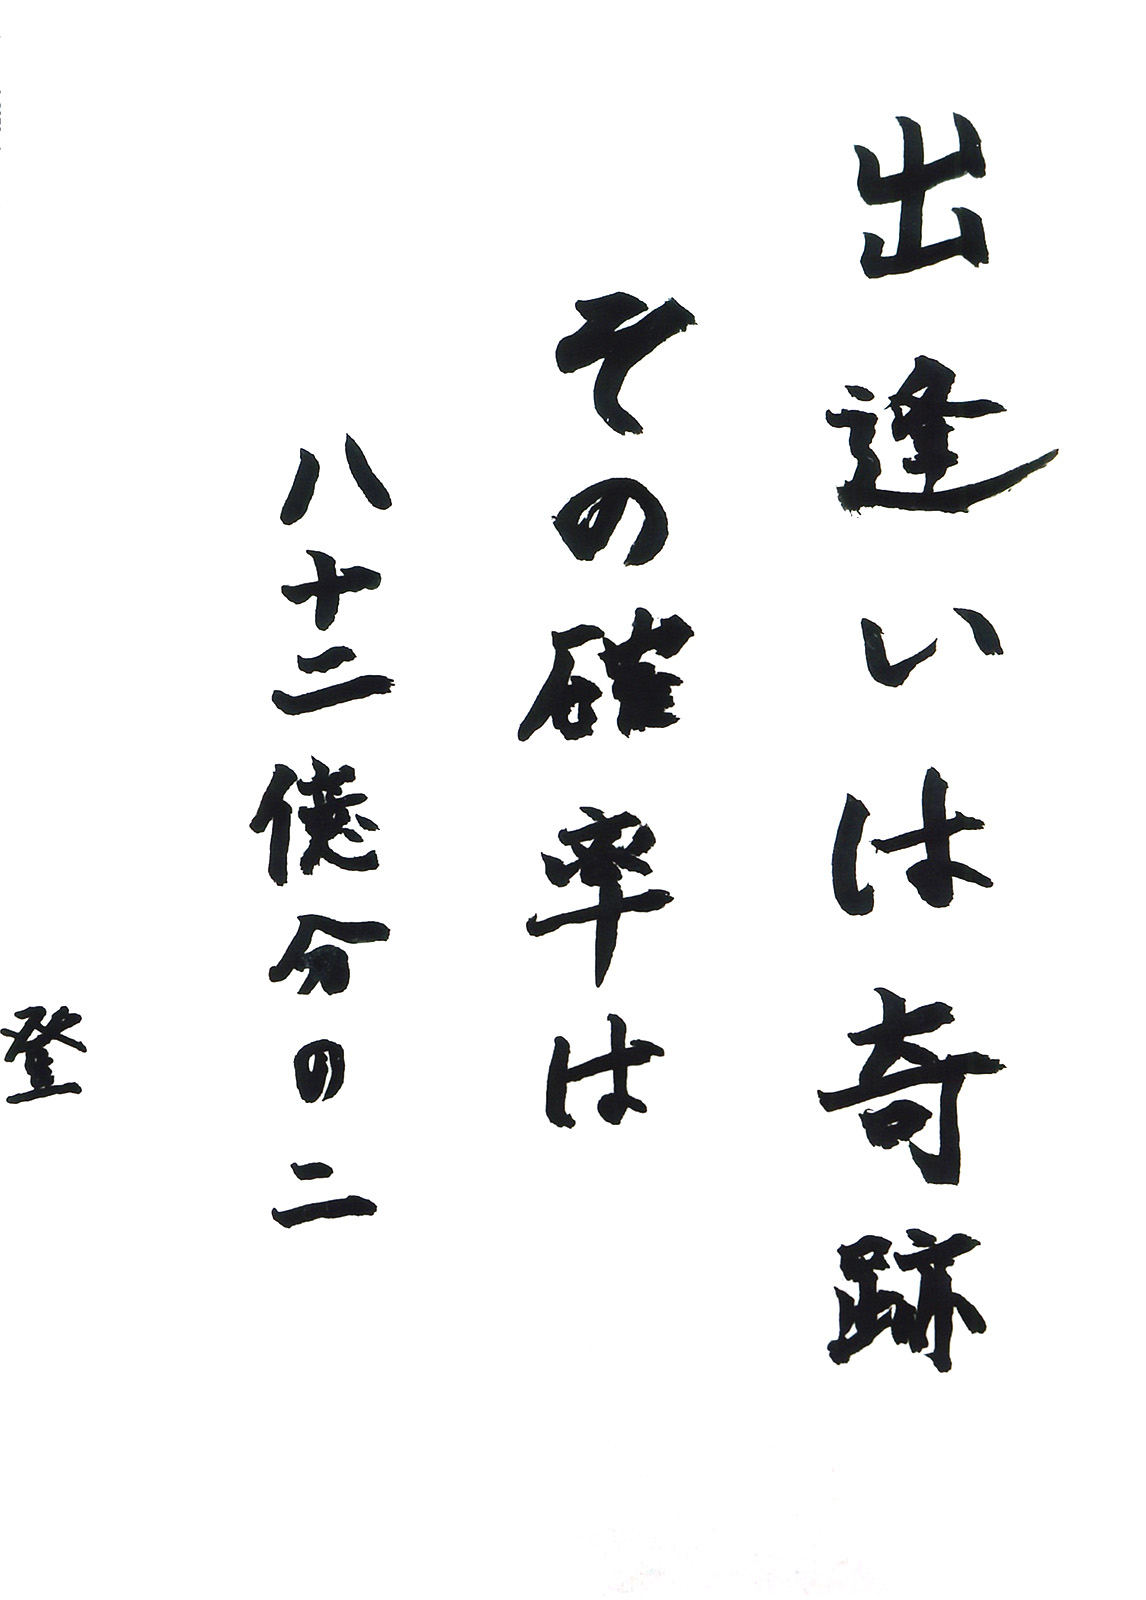 出逢いは奇跡
その確率は
八十二億分の二
登